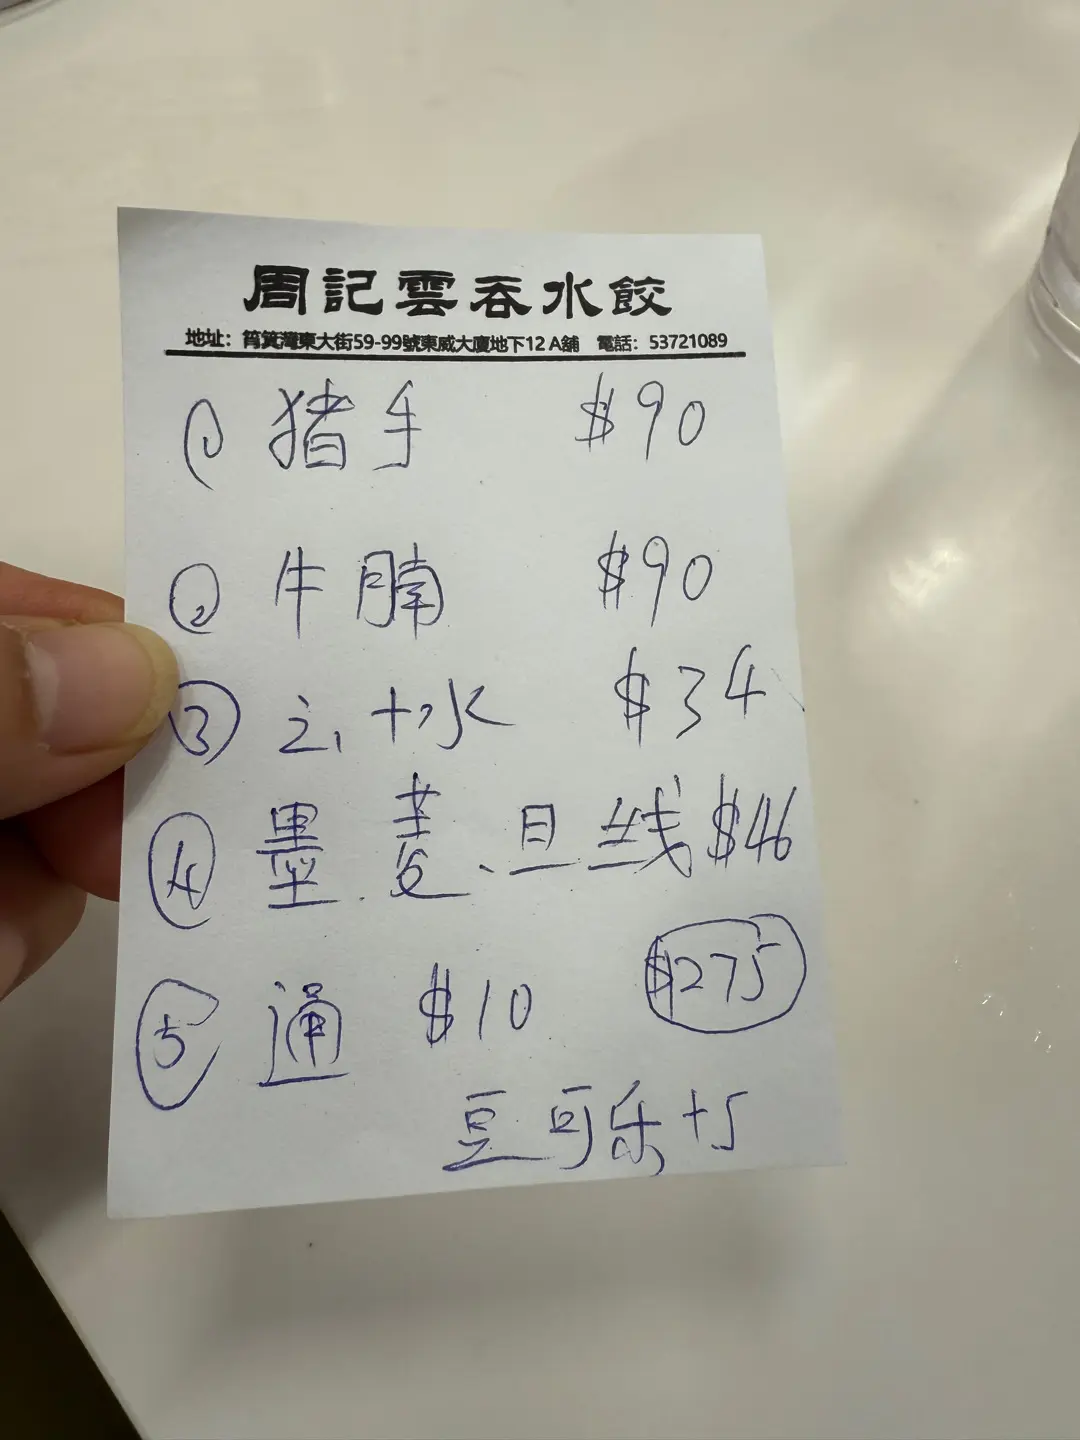 周記雲吞水餃
地址：筲箕灣東大街59-99號東威大廈地下12 A舖 電話：53721089
① 猪手 $90
② 牛腩 $90
③ 云+水 $34
④ 墨 $46
⑤ 通 $10
$275
豆 可乐 +5